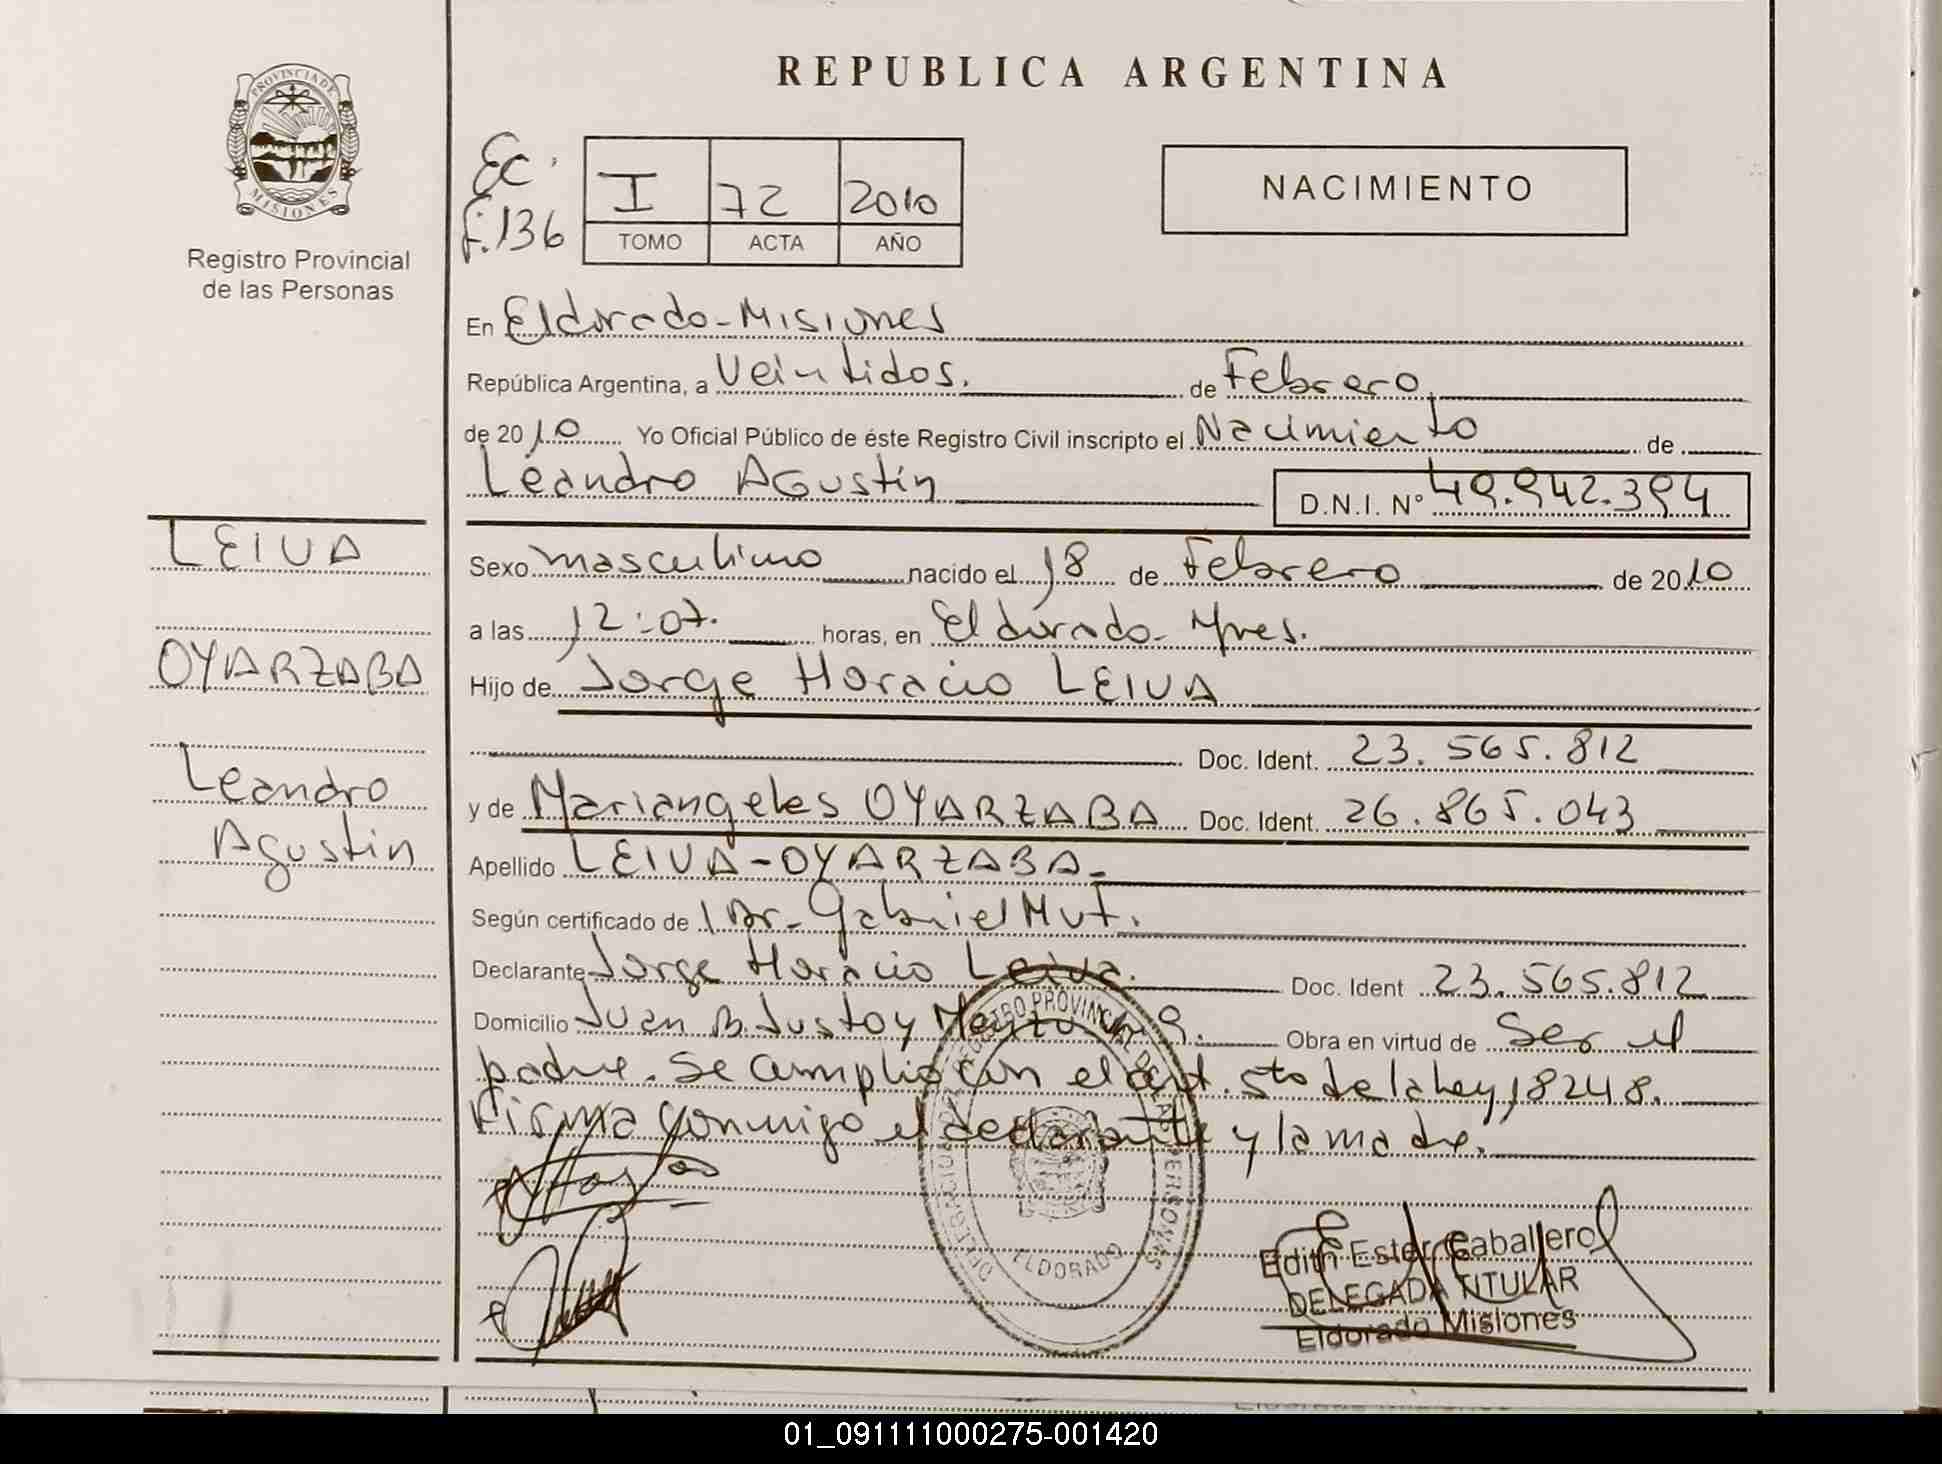 REPUBLICA ARGENTINA
PROVINCIA DE
MISIONES
Registro Provincial
de las Personas
Ec.
f. 136
I 72 2010
TOMO ACTA AÑO
NACIMIENTO
En Eldorado-Misiones
República Argentina, a Veintidos. de Febrero.
de 2010 Yo Oficial Público de éste Registro Civil inscripto el Nacimiento de
Leandro Agustín D.N.I. N° 49.942.394
LEIVA
OYARZABA
Leandro
Agustin
Sexo masculino nacido el 18 de Febrero de 2010
a las 12:07. horas, en Eldorado- Mnes.
Hijo de Jorge Horacio LEIVA
Doc. Ident. 23.565.812
y de Mariangeles OYARZABA Doc. Ident. 26.865.043
Apellido LEIVA-OYARZABA-
Según certificado de Dr. Gabriel Mut.
Declarante Jorge Horacio Leiva. Doc. Ident 23.565.812
Domicilio Juan B. Justo y Obra en virtud de Ser el
padre. Se cumplió con el art. 5to de la Ley 18248.
Firma conmigo el declarante y la madre.
REGISTRO PROVINCIAL DE LAS PERSONAS
ELDORADO
Edith Ester Caballero
DELEGADA TITULAR
Eldorado Misiones
01_091111000275-001420